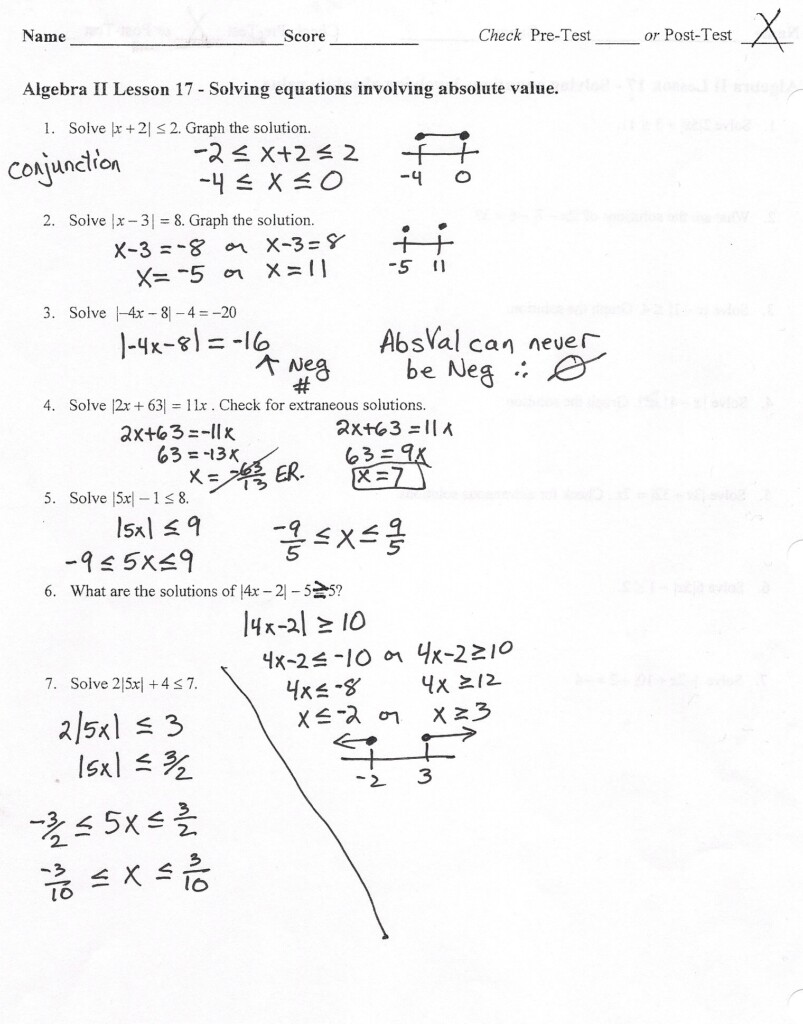 Name ________ Score ________ Check Pre-Test ____ or Post-Test X
Algebra II Lesson 17 - Solving equations involving absolute value.
1. Solve |x + 2| ≤ 2. Graph the solution.
Conjunction
-2 ≤ x+2 ≤ 2
-4 ≤ x ≤ 0
-4 0
2. Solve |x – 3| = 8. Graph the solution.
x-3 = -8 or x-3 = 8
x = -5 or x = 11
-5 11
3. Solve |–4x – 8| – 4 = –20
|-4x-8| = -16
↑ Neg
#
AbsVal can never
be Neg ∴ ∅
4. Solve |2x + 63| = 11x. Check for extraneous solutions.
2x+63 = -11x
63 = -13x
x = -63/13 ER.
2x+63 = 11x
63 = 9x
x = 7
5. Solve |5x| – 1 ≤ 8.
|5x| ≤ 9
-9 ≤ 5x ≤ 9
-9/5 ≤ x ≤ 9/5
6. What are the solutions of |4x – 2| – 5 ≥ 5?
|4x-2| ≥ 10
4x-2 ≤ -10 or 4x-2 ≥ 10
4x ≤ -8 4x ≥ 12
x ≤ -2 or x ≥ 3
-2 3
7. Solve 2|5x| + 4 ≤ 7.
2|5x| ≤ 3
|5x| ≤ 3/2
-3/2 ≤ 5x ≤ 3/2
-3/10 ≤ x ≤ 3/10